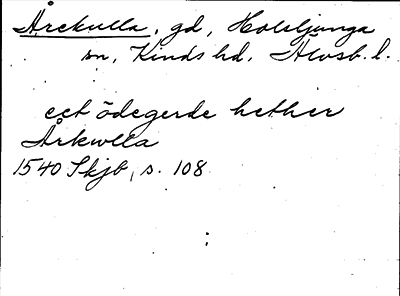 Årekulla, gd, Holsljunga
sn, Kinds hd, Älvsb. l.
ect ödegerde hether
Årkwlla
1540 Skjb, s. 108